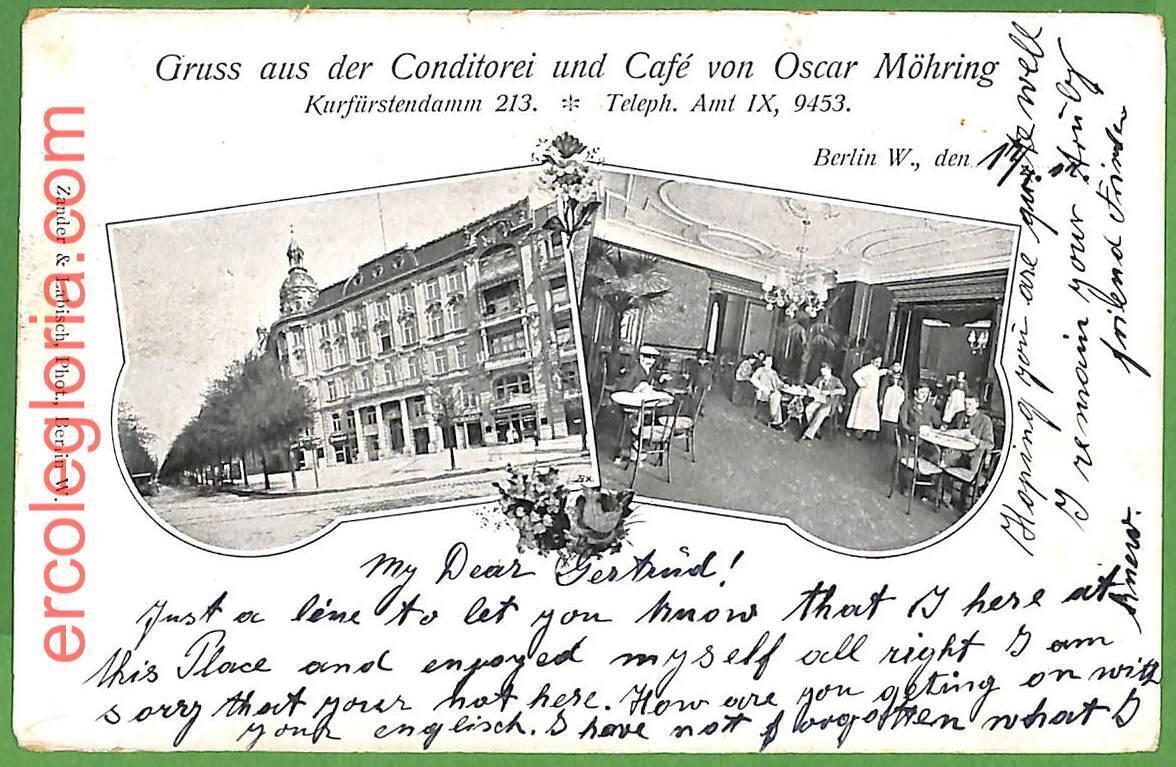 Gruss aus der Conditorei und Café von Oscar Möhring
Kurfürstendamm 213. * Teleph. Amt IX, 9453.
Berlin W., den 17.
Zander & Labisch, Phot., Berlin W.
ercolegloria.com
My Dear Gertrüd!
Just a line to let you know that I here at
this Place and enyoyed myself all right I am
sorry that your not here. How are you geting on with
your englisch. I have not forgotten what I
knew.
Hoping you are quite well
I remain your
friend